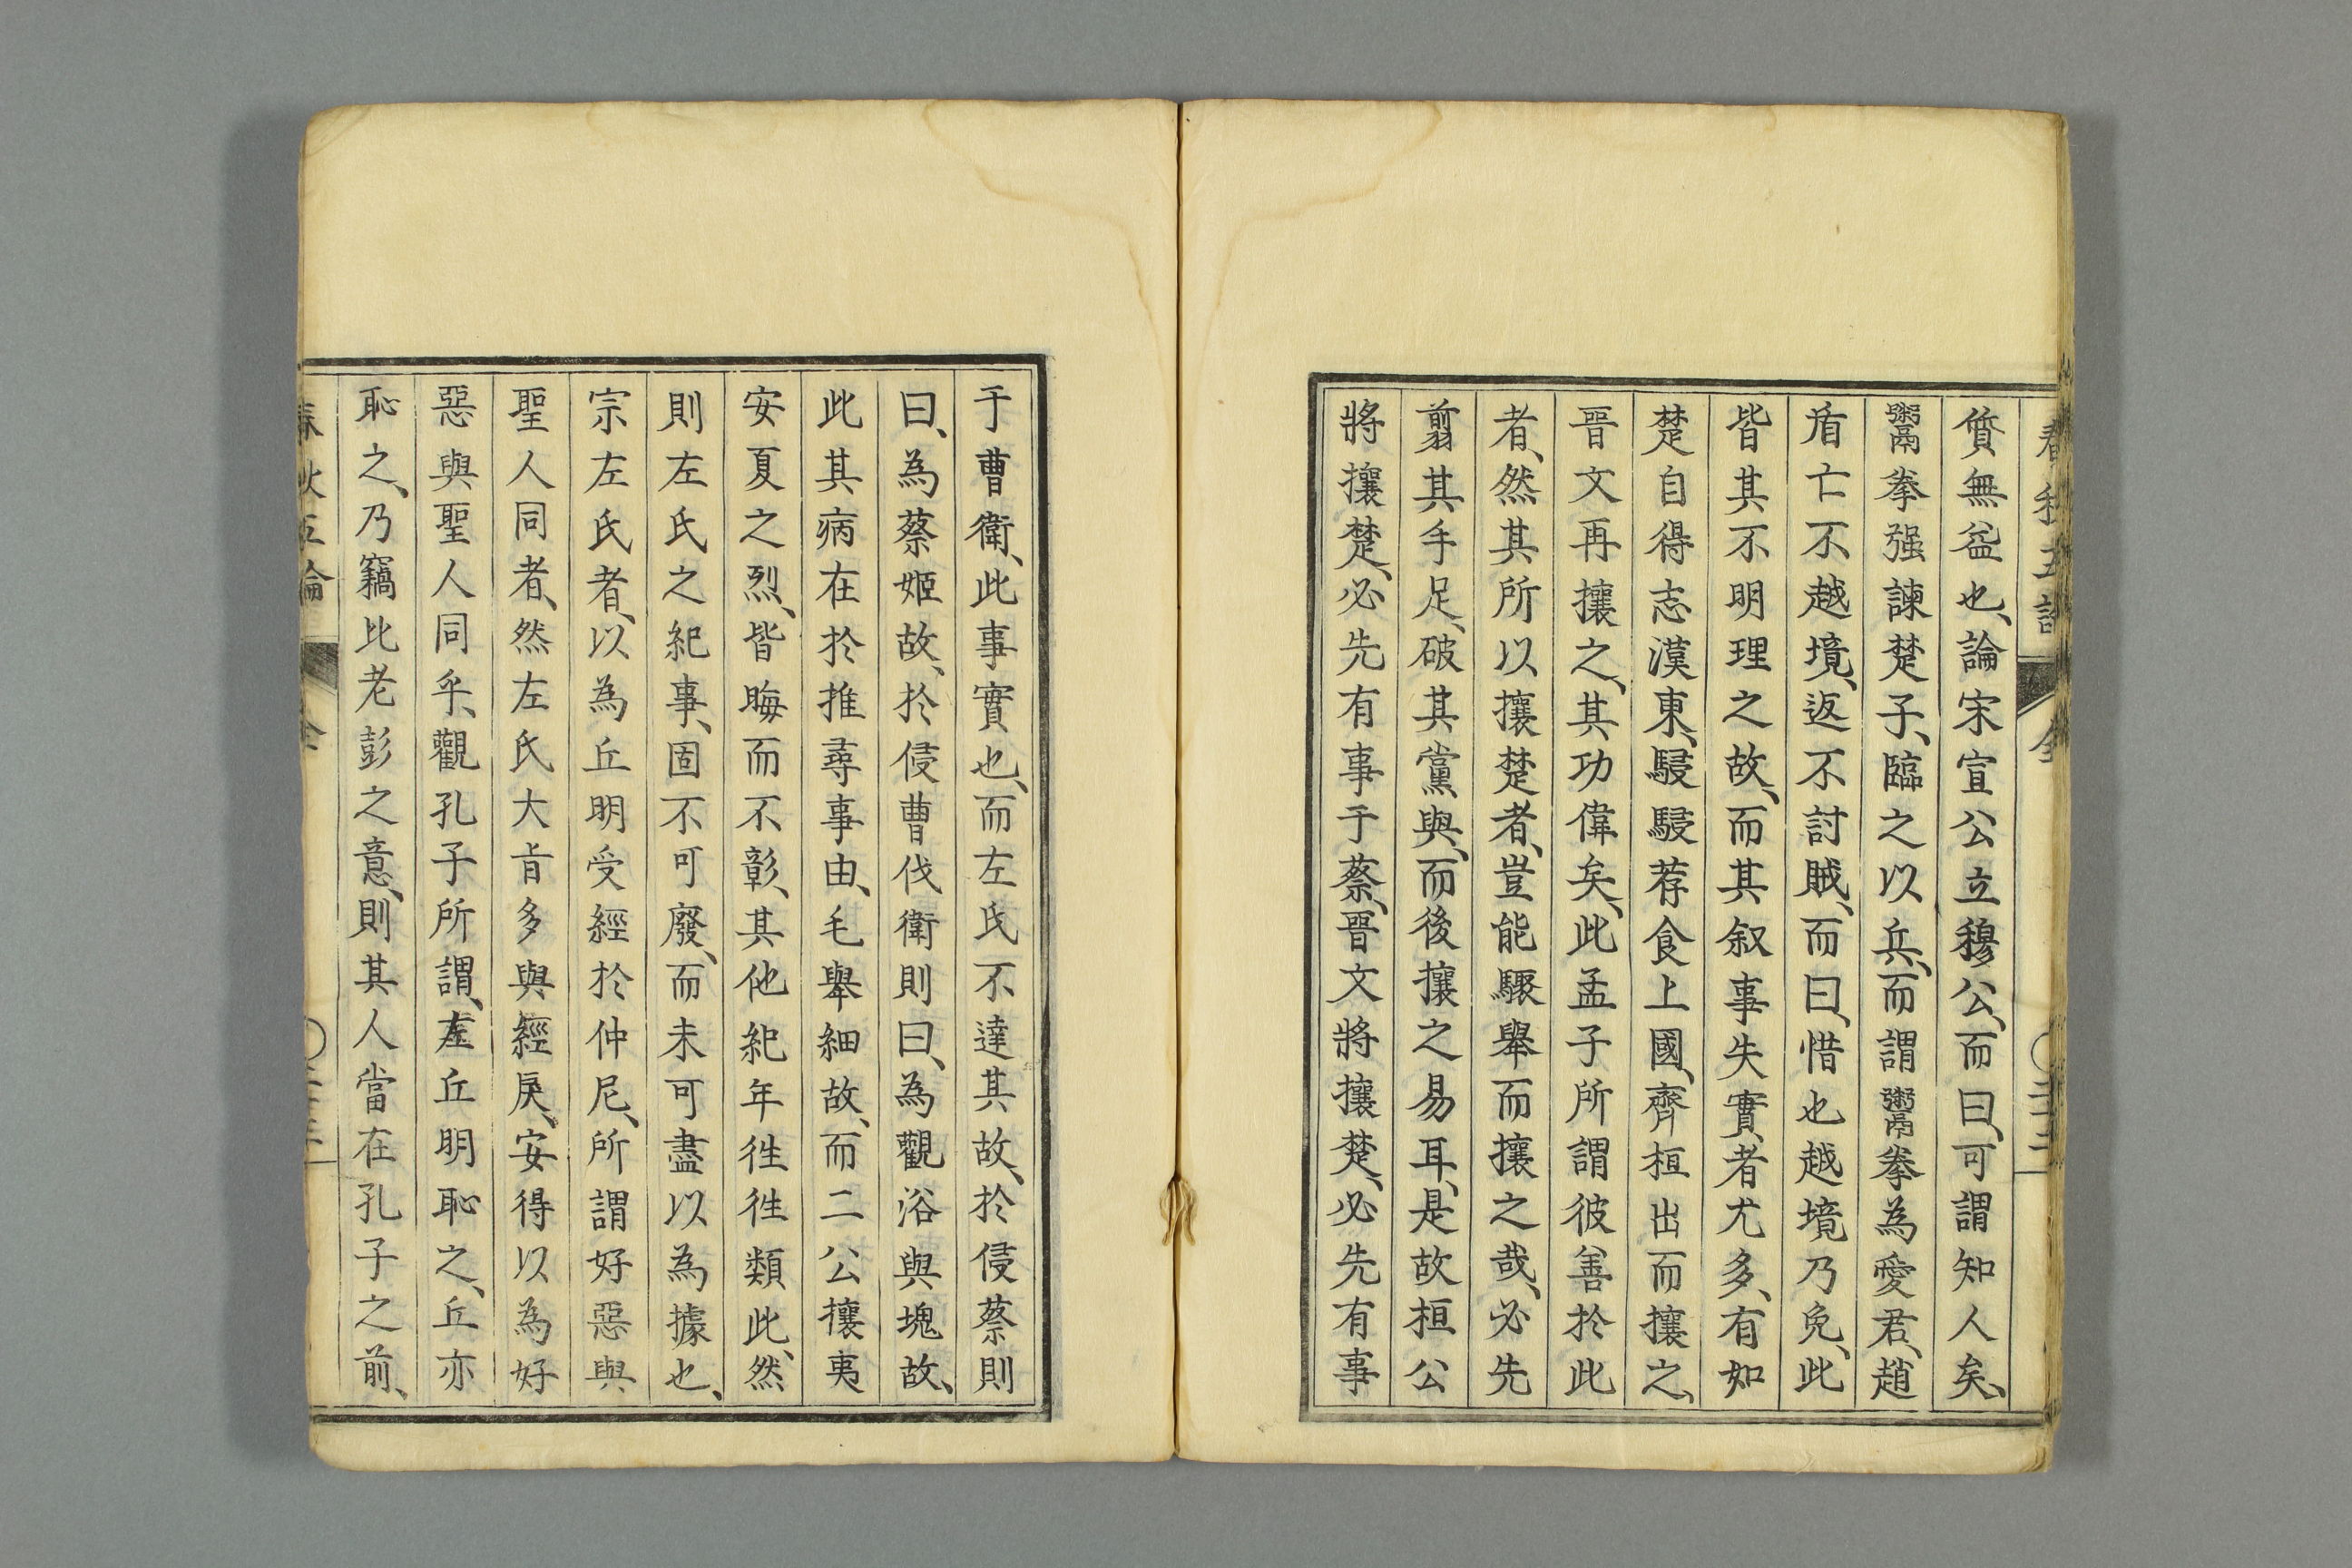 春秋五論 全 ○二十二
質無益也、論宋宣公立穆公、而曰、可謂知人矣、
鬻拳强諫楚子、臨之以兵、而謂鬻拳為愛君、趙
盾亡不越境、返不討賊、而曰、惜也越境乃免、此
皆其不明理之故、而其叙事失實者尤多、有如
楚自得志漢東、駸駸荐食上國、齊桓出而攘之、
晉文再攘之、其功偉矣、此孟子所謂彼善於此
者、然其所以攘楚者、豈能驟舉而攘之哉、必先
翦其手足、破其黨與、而後攘之易耳、是故桓公
將攘楚、必先有事于蔡、晉文將攘楚、必先有事
于曹衛、此事實也、而左氏不達其故、於侵蔡則
曰、為蔡姬故、於侵曹伐衛則曰、為觀浴與塊故、
此其病在於推尋事由、毛舉細故、而二公攘夷
安夏之烈、皆晦而不彰、其他紀年徃徃類此、然
則左氏之紀事、固不可廢、而未可盡以為據也、
宗左氏者、以為丘明受經於仲尼、所謂好惡與
聖人同者、然左氏大旨多與經戾、安得以為好
惡與聖人同乎、觀孔子所謂、左丘明恥之、丘亦
恥之、乃竊比老彭之意、則其人當在孔子之前、
春秋五論 全